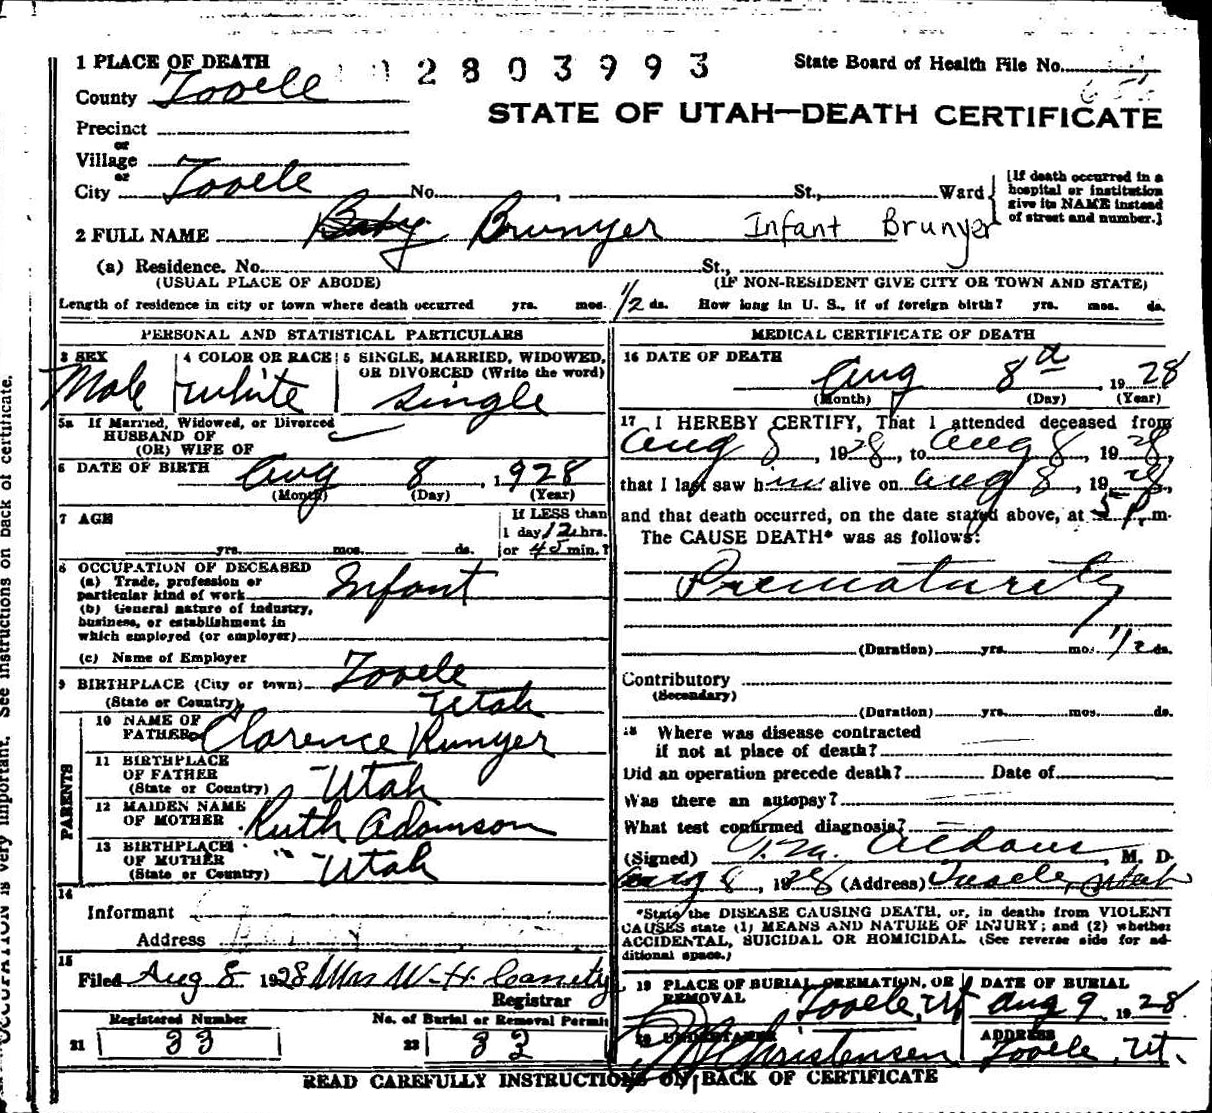 1 PLACE OF DEATH
2803993
State Board of Health File No.
County Tooele
STATE OF UTAH—DEATH CERTIFICATE
Precinct
or
Village
or
City Tooele No. , St., Ward
[If death occurred in a
hospital or institution
give its NAME instead
of street and number.]
2 FULL NAME Baby Brunyer Infant Brunyer
(a) Residence. No. St.,
(USUAL PLACE OF ABODE) (IF NON-RESIDENT GIVE CITY OR TOWN AND STATE)
Length of residence in city or town where death occurred yrs. mos. 1/2 ds. How long in U. S., if of foreign birth? yrs. mos. ds.
PERSONAL AND STATISTICAL PARTICULARS
3 SEX
Male
4 COLOR OR RACE
white
5 SINGLE, MARRIED, WIDOWED,
OR DIVORCED (Write the word)
single
5a If Married, Widowed, or Divorced
HUSBAND OF
(OR) WIFE OF
6 DATE OF BIRTH Aug 8, 1928
(Month) (Day) (Year)
7 AGE
yrs. mos. ds.
If LESS than
1 day 12 hrs.
or 45 min.?
8 OCCUPATION OF DECEASED
(a) Trade, profession or
particular kind of work Infant
(b) General nature of industry,
business, or establishment in
which employed (or employer)
(c) Name of Employer
9 BIRTHPLACE (City or town) Tooele
(State or Country) Utah
PARENTS
10 NAME OF
FATHER Clarence Runyer
11 BIRTHPLACE
OF FATHER
(State or Country) Utah
12 MAIDEN NAME
OF MOTHER Ruth Adamson
13 BIRTHPLACE
OF MOTHER
(State or Country) " Utah
14
Informant
Address
15
Filed Aug 8 1928 Mrs W. H. Cassity
Registrar
Registered Number
21 33
No. of Burial or Removal Permit
22 32
MEDICAL CERTIFICATE OF DEATH
16 DATE OF DEATH
Aug 8th, 1928
(Month) (Day) (Year)
17 I HEREBY CERTIFY, That I attended deceased from
Aug 8, 1928, to Aug 8, 1928,
that I last saw him alive on Aug 8, 1928,
and that death occurred, on the date stated above, at 5 P.m.
The CAUSE DEATH* was as follows:
Prematurity
(Duration) yrs. mos. 1/2 ds.
Contributory
(Secondary)
(Duration) yrs. mos. ds.
18 Where was disease contracted
if not at place of death?
Did an operation precede death? Date of
Was there an autopsy?
What test confirmed diagnosis?
(Signed) M. D.
Aug 8, 1928 (Address) Tooele, Utah
*State the DISEASE CAUSING DEATH, or, in deaths from VIOLENT
CAUSES state (1) MEANS AND NATURE OF INJURY; and (2) whether
ACCIDENTAL, SUICIDAL OR HOMICIDAL. (See reverse side for ad-
ditional space.)
19 PLACE OF BURIAL, CREMATION, OR
REMOVAL Tooele, Ut
DATE OF BURIAL
Aug 9, 1928
20 UNDERTAKER
Christensen
ADDRESS
Tooele, Ut.
READ CAREFULLY INSTRUCTIONS ON BACK OF CERTIFICATE
OCCUPATION is very important. See instructions on back of certificate.